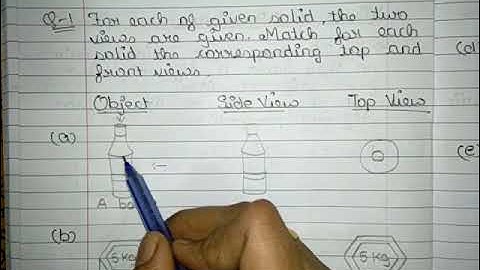 Q-1 For each of given solid, the two
views are given. Match for each
solid the corresponding top and
front views.
Object Side View Top View
(a)
(d)
(e)
A bo
(b)
5 kg 5 kg